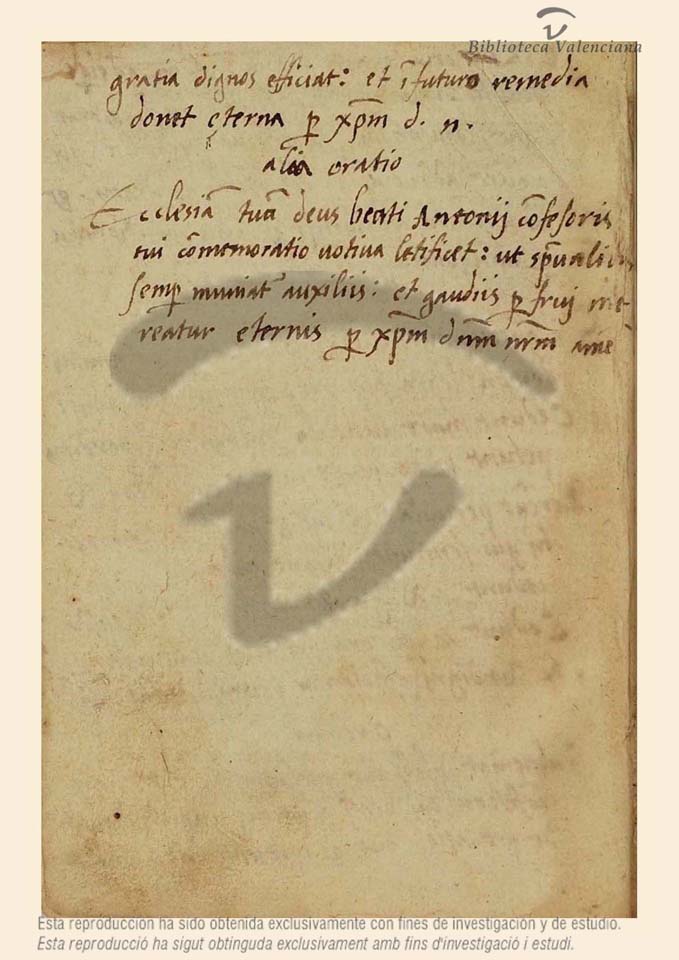 Biblioteca Valenciana
gratia dignos efficiat: et ĩ futuro remedia
donet ęterna p xp̃m d. n.
alia oratio
Ecclesiã tuã deus beati Antonij cõfesoris
tui cõmemoratio uotiva letificet: ut sp̃ualibus
semp muniat auxiliis: et gaudiis p frui me-
reatur eternis p xp̃m dnm̃ nrm̃ ame
Esta reproducción ha sido obtenida exclusivamente con fines de investigación y de estudio.
Esta reproducció ha sigut obtinguda exclusivament amb fins d'investigació i estudi.